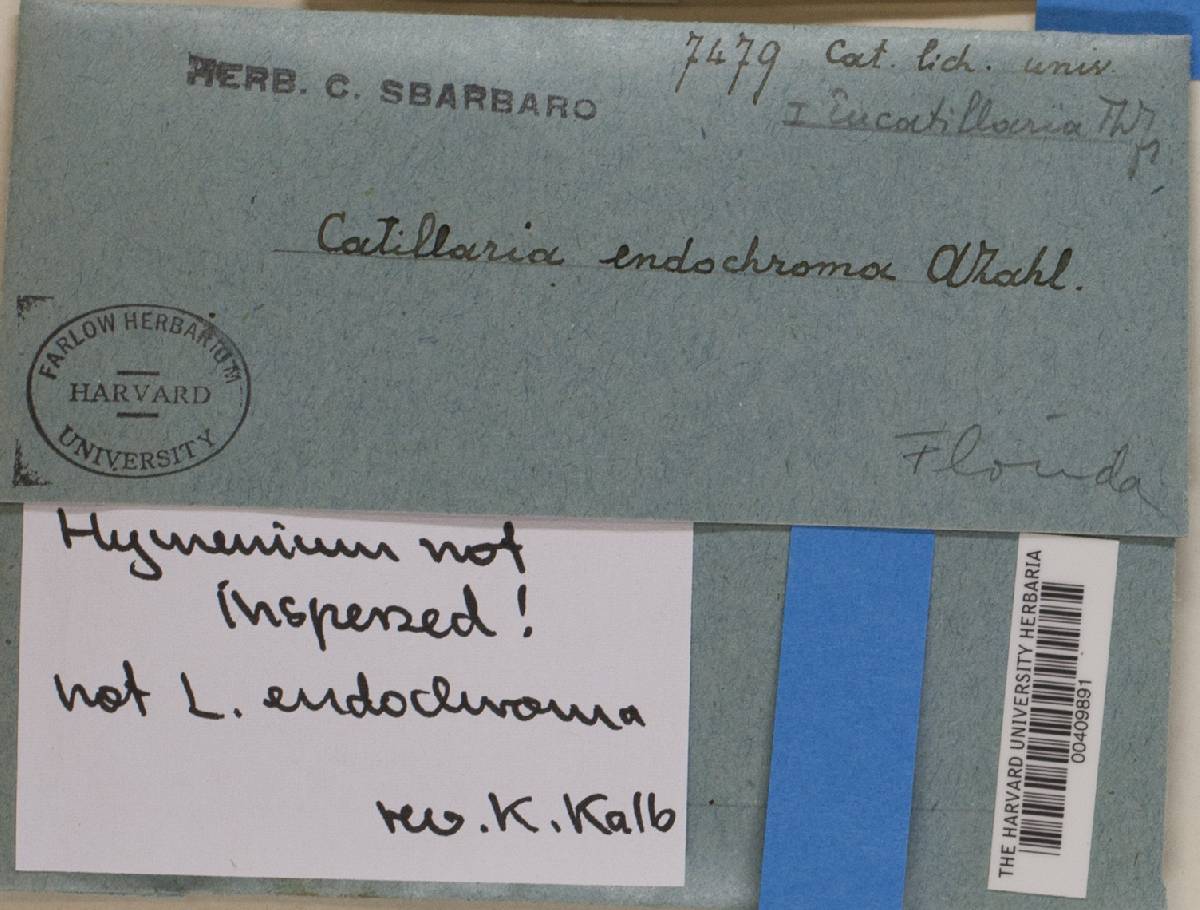 HERB. C. SBARBARO
7479 Cat. lich. univ.
I Eucatillaria Th. Fr.
Catillaria endochroma Wahl.
FARLOW HERBARIUM
HARVARD
UNIVERSITY
Florida
Hymenium not
inspersed!
not L. endochroma
rev. K. Kalb
THE HARVARD UNIVERSITY HERBARIA
00409891